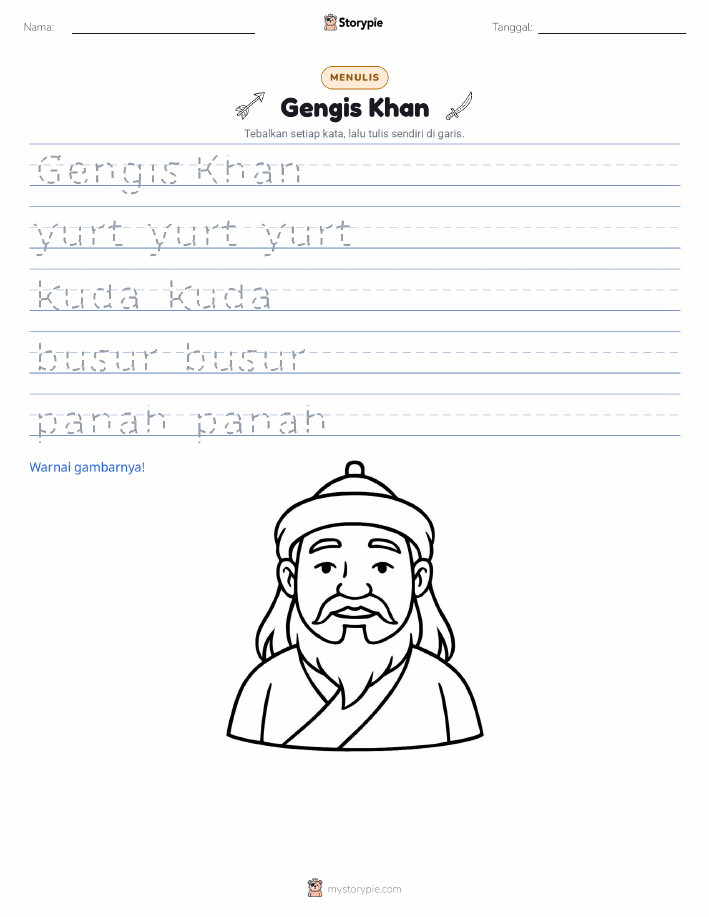 Nama:
Storypie
Tanggal:
MENULIS
Gengis Khan
Tebalkan setiap kata, lalu tulis sendiri di garis.
Gengis Khan
yurt yurt yurt
kuda kuda
busur busur
panah panah
Warnai gambarnya!
mystorypie.com